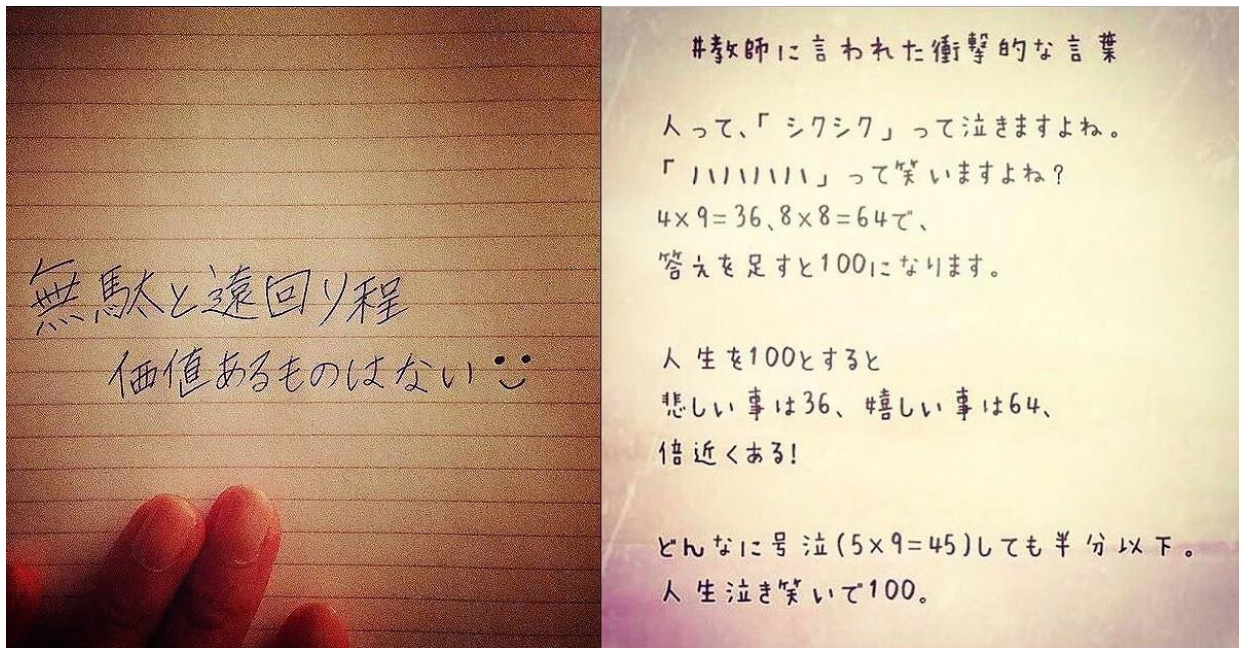 無駄と遠回り程
価値あるものはない
#教師に言われた衝撃的な言葉
人って、「シクシク」って泣きますよね。
「ハハハハ」って笑いますよね?
4×9=36、8×8=64で、
答えを足すと100になります。
人生を100とすると
悲しい事は36、嬉しい事は64、
倍近くある!
どんなに号泣(5×9=45)しても半分以下。
人生泣き笑いで100。